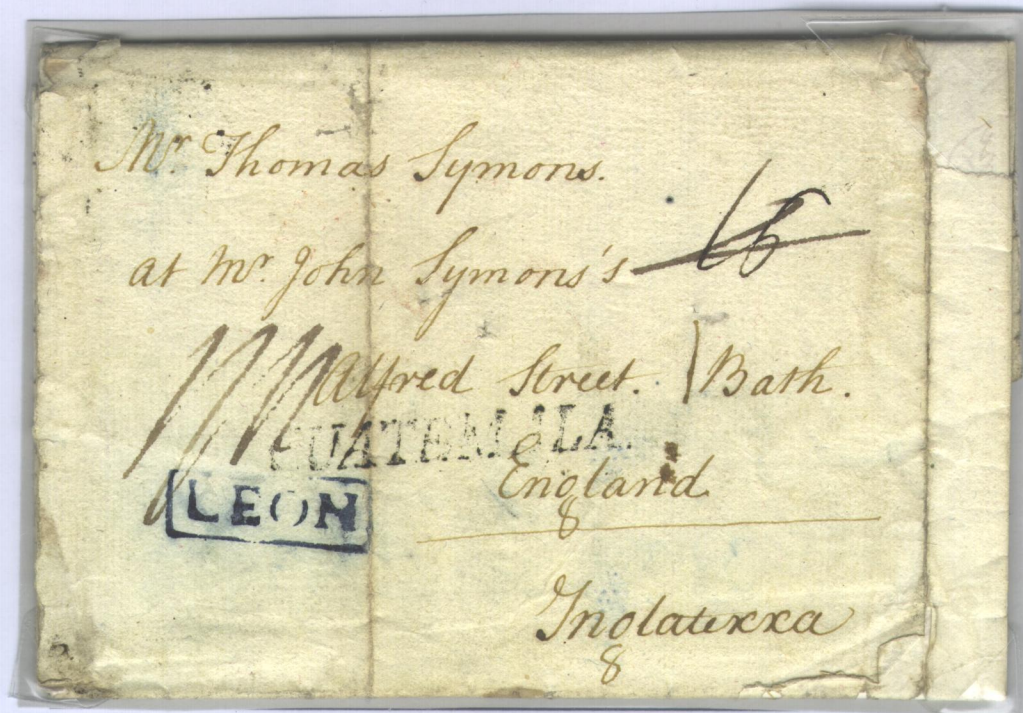 Mr. Thomas Symons.
at Mr. John Symons's
Alfred Street. Bath.
GUATEMALA.
England
8
LEON
Inglaterra
8